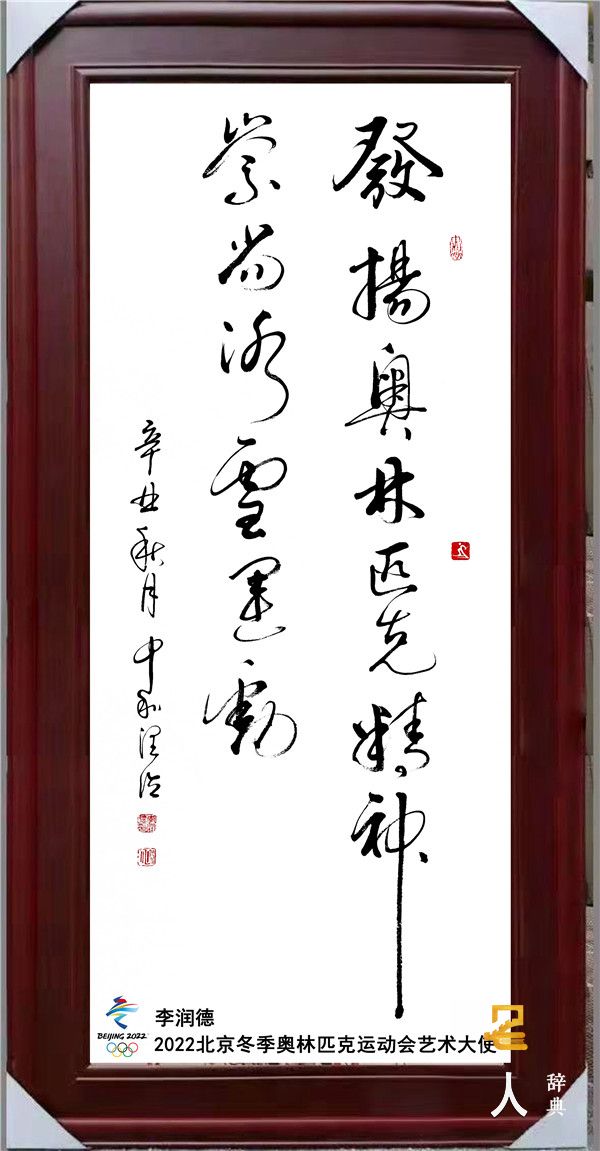 發揚奧林匹克精神
崇尚冰雪運動
辛丑秋月中和润德
BEIJING 2022
李润德
2022北京冬季奥林匹克运动会艺术大使
人
辞典